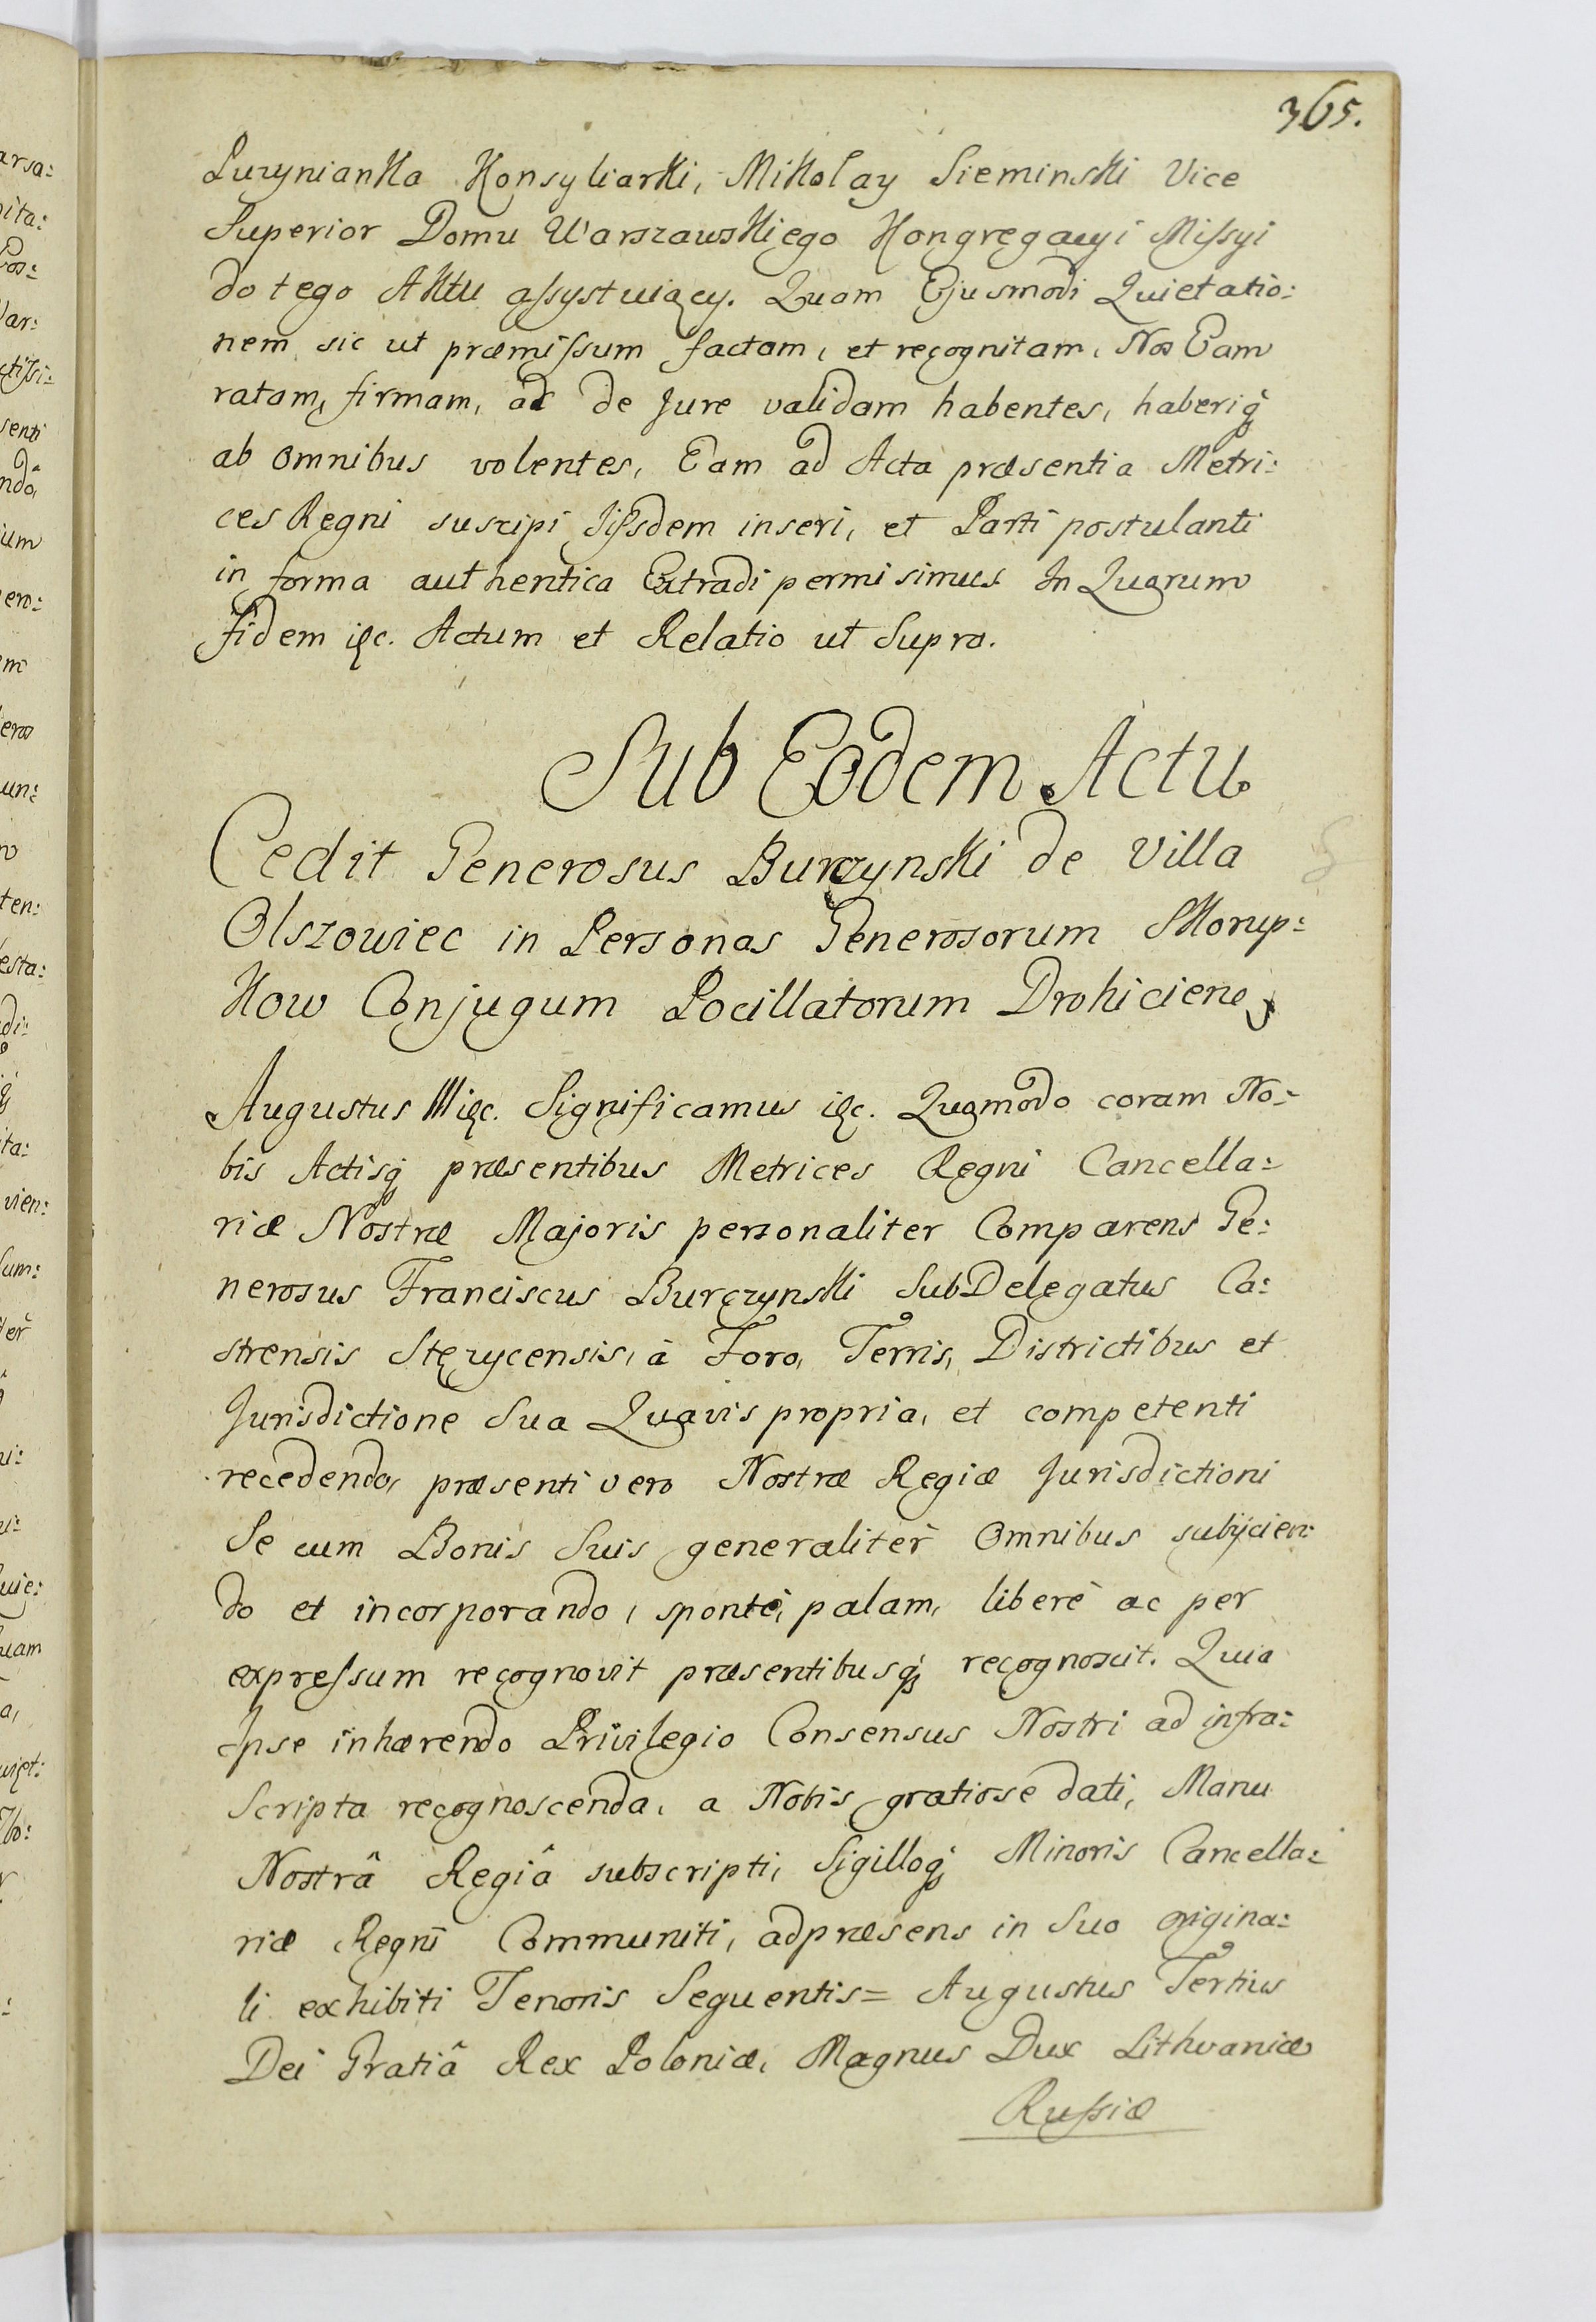 365.
Puzynianka Konsyliarki, Mikolay Sieminski Vice
Superior Domu Warszawskiego Kongregacyi Missyi
do tego Aktu assystuiący. Quam Ejusmodi Quietatio:
nem sic ut præmissum factam, et recognitam, Nos Eam
ratam, firmam, ac de Jure validam habentes, haberiq́
ab omnibus volentes, Eam ad Acta præsentia Metri:
ces Regni suscipi Iisdem inseri, et Parti postulanti
in forma authentica Extradi permisimus In Quorum
fidem &c. Actum et Relatio ut Supra.
Sub Eodem Actu
Cedit Generosus Burczynski de Villa
Olszowiec in Personas Generosorum Skorup:
kow Conjugum Pocillatorum Drohiciens
Augustus III &c. Significamus &c. Quomodo coram No:
bis Actisq́ præsentibus Metrices Regni Cancella:
riæ Nostræ Majoris personaliter Comparens Ge:
nerosus Franciscus Burczynski SubDelegatus Ca:
strensis Stęzycensis, à Foro, Terris, Districtibus et
Jurisdictione Sua Quavis propria, et competenti
recedendo, præsenti vero Nostræ Regiæ Jurisdictioni
Se cum Bonis Suis generaliter Omnibus subijcien:
do et incorporando, sponte, palam, liberè ac per
expressum recognovit præsentibusq́ recognoscit. Quia
Ipse inhærendo Privilegio Consensus Nostri ad infra:
scripta recognoscenda, a Nobis gratiose dati, Manu
Nostrâ Regiâ subscripti, Sigilloq́ Minoris Cancella:
riæ Regni Communiti, ad præsens in Suo origina:
li exhibiti Tenoris Sequentis= Augustus Tertius
Dei Gratiâ Rex Poloniæ, Magnus Dux Lithvaniæ
Russiæ